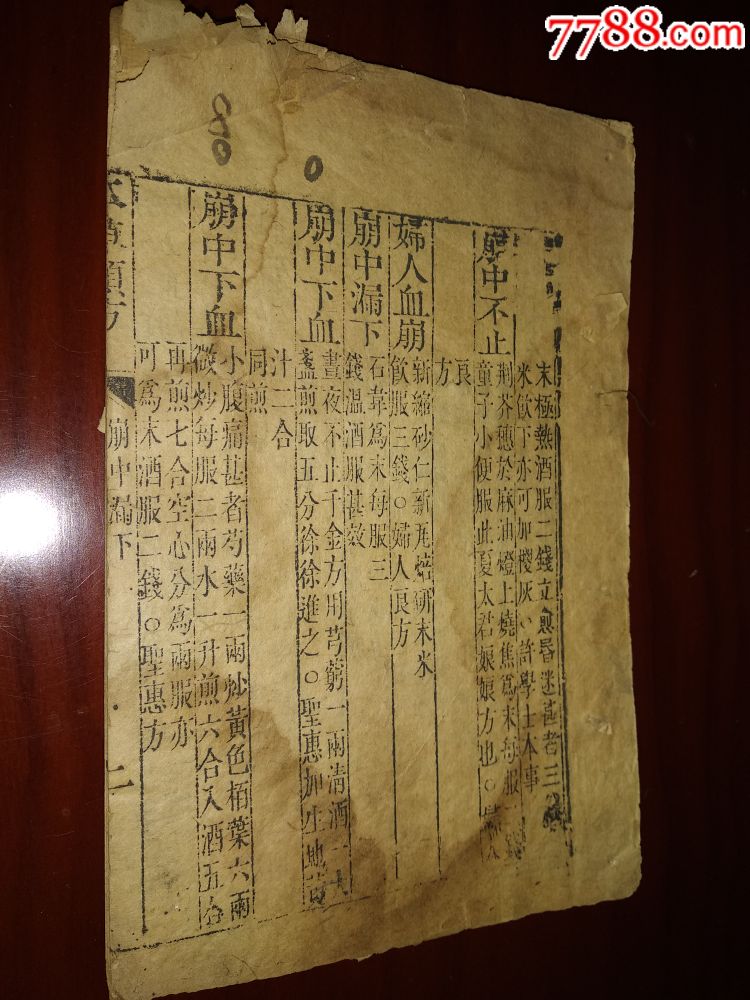 7788.com
末極熱酒服二錢立愈昏迷甚者三
米飲下亦可加稷灰 許學士本事
崩中不止
荆芥穗於麻油燈上燒焦爲末每服
童子小便服此夏太君娘娘方也○
良
方
婦人血崩
新縮砂仁新瓦焙研末米
飲服三錢○婦人良方
崩中漏下
石韋爲末每服三
錢溫酒服甚效
崩中下血
晝夜不止千金方用芎藭一兩清酒一大
盞煎取五分徐徐進之○聖惠加生地黃
汁二合
同煎
崩中下血
小腹痛甚者芍藥一兩炒黃色栢葉六兩
微炒每服二兩水一升煎六合入酒五合
再煎七合空心分爲兩服亦
可爲末酒服二錢○聖惠方
本草類方
崩中漏下
二